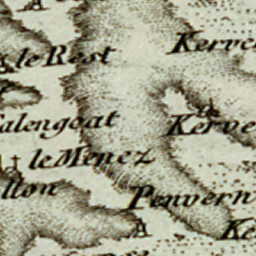 A
le Rest
Kerve
alengoat
Kerve
le Menez
lton
Penvern
A
Ke